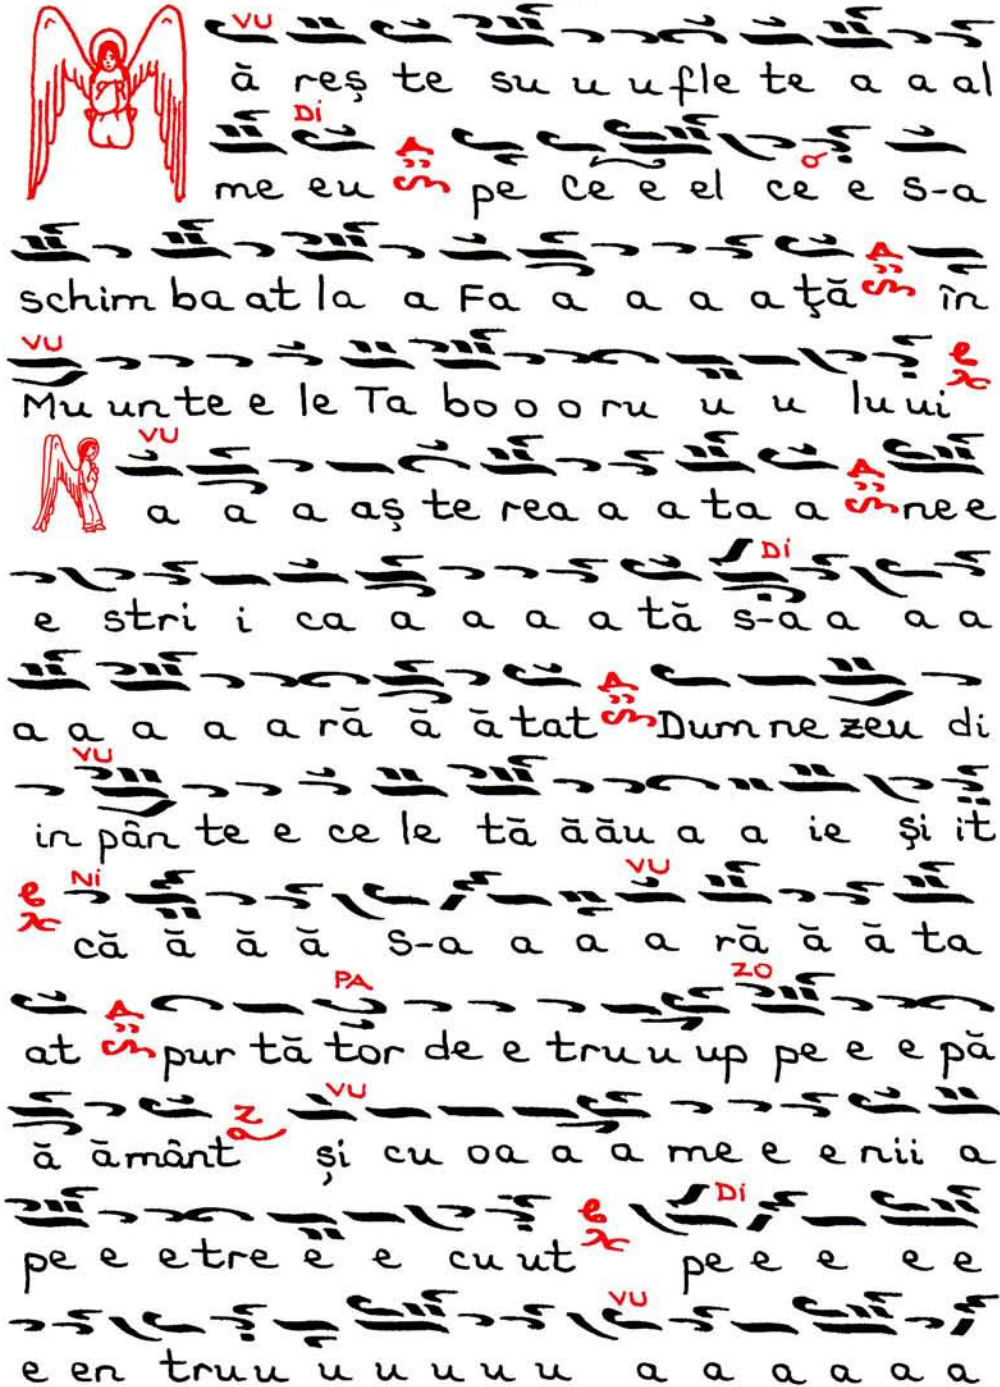 VU
ă reș te su u u fle te a a al
DI
me eu pe ce e el ce e s-a
schim ba at la a Fa a a a a ță în
VU
Mu un te e le Ta bo o o ru u u lu ui
VU
a a a aș te rea a a ta a ne e
DI
e stri i ca a a a a tă s-a a a a
a a a a a ră ă ă tat Dum ne zeu di
VU
in pân te e ce le tă ă ău a a ie și it
NI VU
că ă ă ă s-a a a a ră ă ă ta
PA ZO
at pur tă tor de e tru u up pe e e pă
VU
ă ământ și cu oa a a me e e nii a
DI
pe e e tre e e cu ut pe e e e e
VU
e en tru u u u u u u a a a a a a